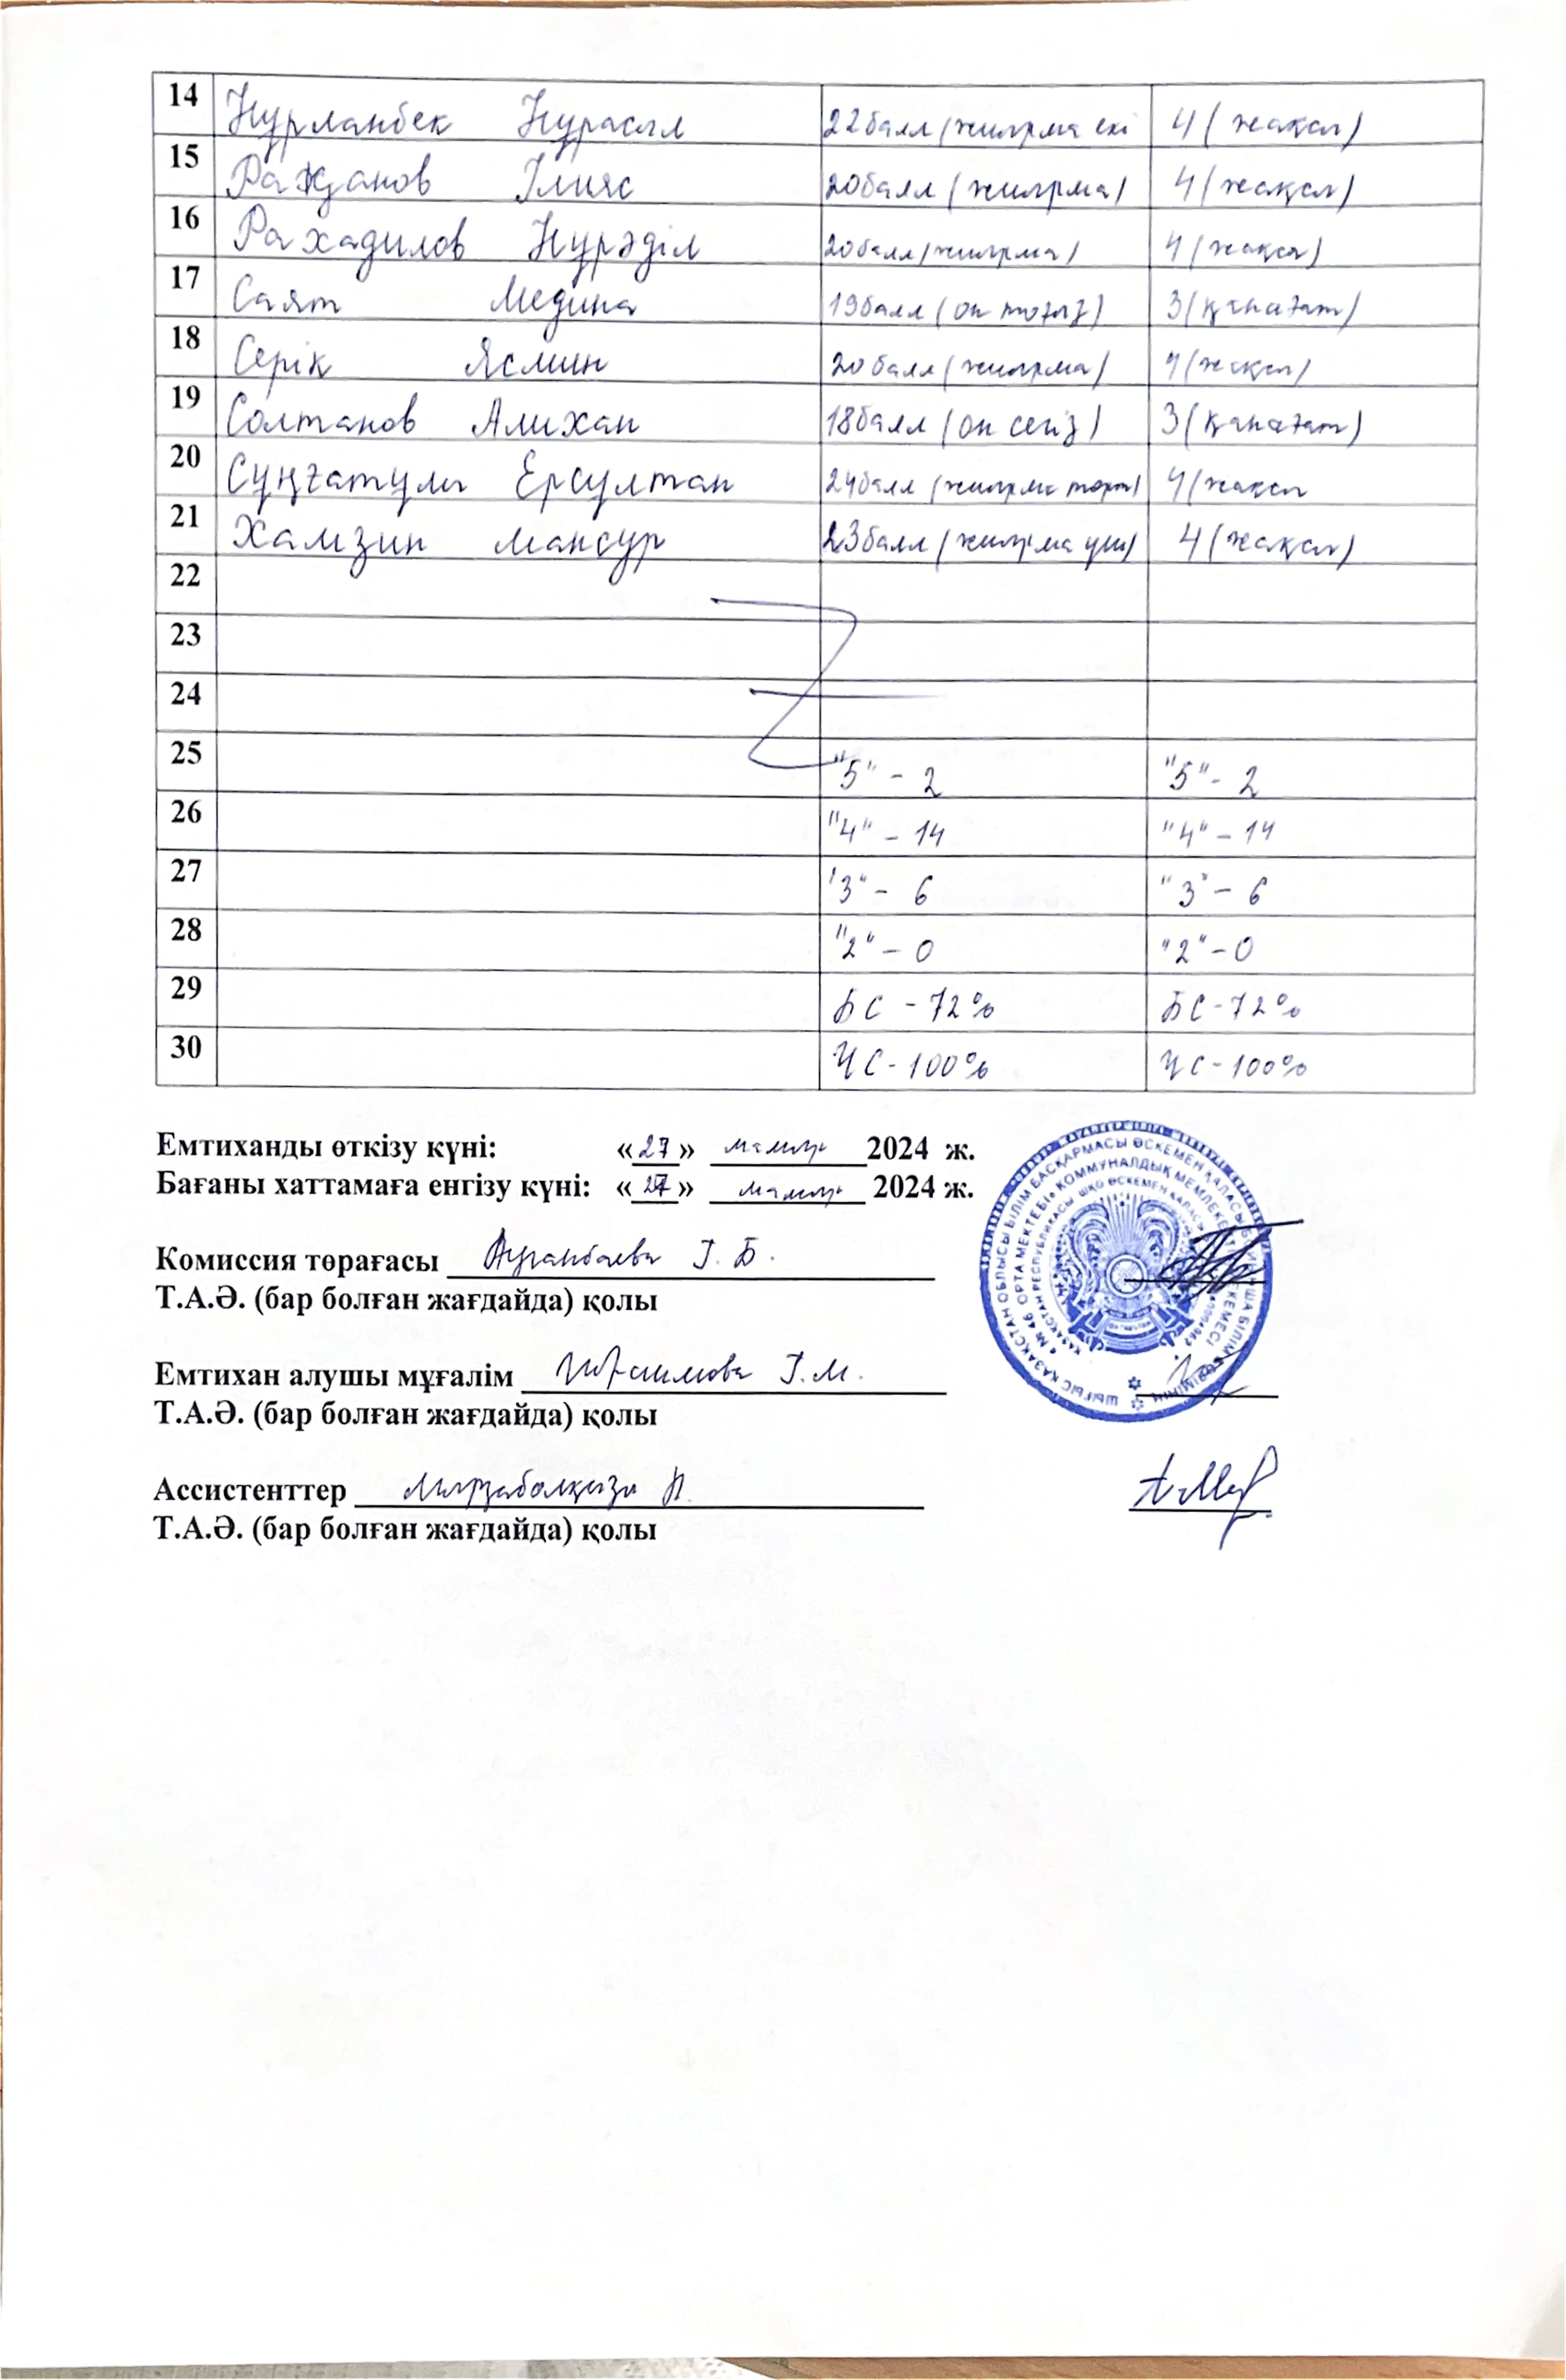 14 Нұрланбек Нұрасыл 22балл (жиырма екі 4 ( жақсы)
15 Ражданов Ілияс 20балл ( жиырма) 4 (жақсы)
16 Рахадилов Нұрәділ 20балл (жиырма) 4 (жақсы)
17 Саят Медина 19балл (он тоғыз) 3(қанағат)
18 Серік Ясмин 20 балл (жиырма) 4 (жақсы)
19 Солтанов Алихан 18балл (он сегіз) 3 (қанағат)
20 Сұңғатұлы Ерсұлтан 24балл (жиырма төрт) 4 (жақсы
21 Хамзин Мансур 23балл (жиырма үш) 4 (жақсы)
22
23
24
25 "5" - 2 "5" - 2
26 "4" - 14 "4" - 14
27 "3" - 6 "3" - 6
28 "2" - 0 "2" - 0
29 БС - 72% БС - 72%
30 ҮС - 100% ҮС - 100%
Емтиханды өткізу күні: «27» мамыр 2024 ж.
Бағаны хаттамаға енгізу күні: «27» мамыр 2024 ж.
Комиссия төрағасы Г. Б.
Т.А.Ә. (бар болған жағдайда) қолы
Емтихан алушы мұғалім Ибраимова Г.М.
Т.А.Ә. (бар болған жағдайда) қолы
Ассистенттер Мырзаболқызы А.
Т.А.Ә. (бар болған жағдайда) қолы